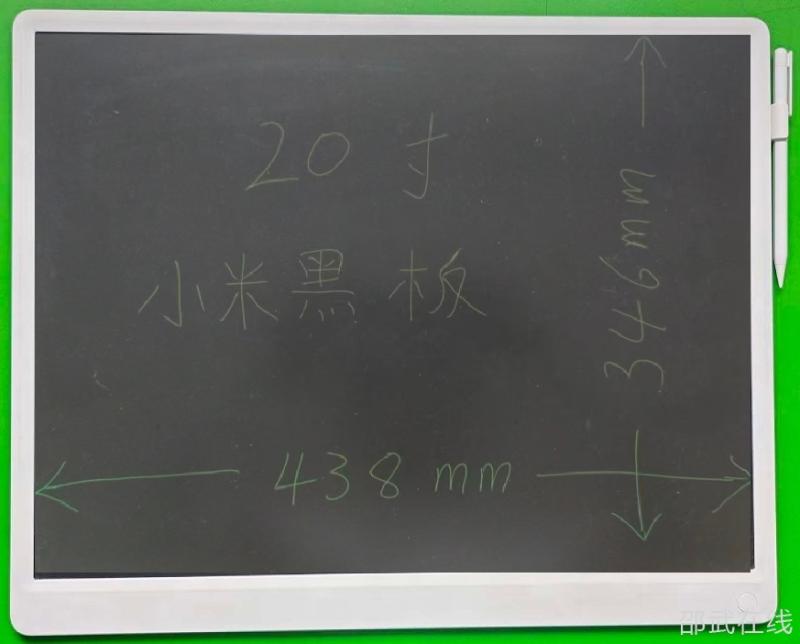 20寸
小米黑板
346mm
438mm
邵武在线